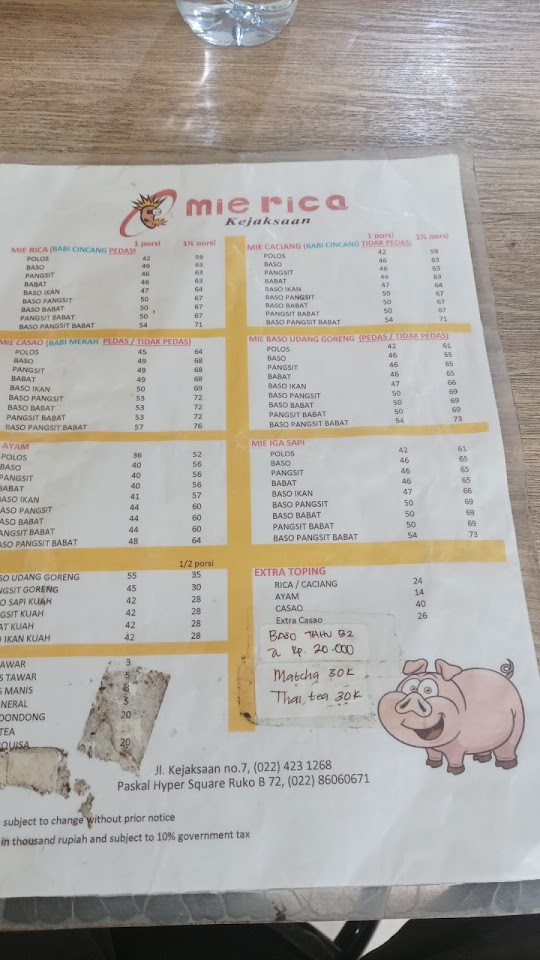 mie rica
Kejaksaan
1 porsi 1½ porsi
MIE RICA (BABI CINCANG PEDAS)
POLOS 42 59
BASO 46 63
PANGSIT 46 63
BABAT 46 63
BASO IKAN 47 64
BASO PANGSIT 50 67
BASO BABAT 50 67
PANGSIT BABAT 50 67
BASO PANGSIT BABAT 54 71
1 porsi 1½ porsi
MIE CACIANG (BABI CINCANG TIDAK PEDAS)
POLOS 42 59
BASO 46 63
PANGSIT 46 63
BABAT 46 63
BASO IKAN 47 64
BASO PANGSIT 50 67
BASO BABAT 50 67
PANGSIT BABAT 50 67
BASO PANGSIT BABAT 54 71
MIE CASAO (BABI MERAH PEDAS / TIDAK PEDAS)
POLOS 45 64
BASO 49 68
PANGSIT 49 68
BABAT 49 68
BASO IKAN 50 69
BASO PANGSIT 53 72
BASO BABAT 53 72
PANGSIT BABAT 53 72
BASO PANGSIT BABAT 57 76
MIE BASO UDANG GORENG (PEDAS / TIDAK PEDAS)
POLOS 42 61
BASO 46 65
PANGSIT 46 65
BABAT 46 65
BASO IKAN 47 66
BASO PANGSIT 50 69
BASO BABAT 50 69
PANGSIT BABAT 50 69
BASO PANGSIT BABAT 54 73
AYAM
POLOS 36 52
BASO 40 56
PANGSIT 40 56
BABAT 40 56
BASO IKAN 41 57
BASO PANGSIT 44 60
BASO BABAT 44 60
PANGSIT BABAT 44 60
BASO PANGSIT BABAT 48 64
MIE IGA SAPI
POLOS 42 61
BASO 46 65
PANGSIT 46 65
BABAT 46 65
BASO IKAN 47 66
BASO PANGSIT 50 69
BASO BABAT 50 69
PANGSIT BABAT 50 69
BASO PANGSIT BABAT 54 73
1/2 porsi
SO UDANG GORENG 55 35
NGSIT GORENG 45 30
O SAPI KUAH 42 28
GSIT KUAH 42 28
AT KUAH 42 28
O IKAN KUAH 42 28
EXTRA TOPING
RICA / CACIANG 24
AYAM 14
CASAO 40
Extra Casao 26
BASO TAHU B2
a Rp. 20.000
Matcha 30K
Thai tea 30K
AWAR 3
S TAWAR 5
S MANIS 8
NERAL 5
DONDONG 20
TEA
QUISA 20
Jl. Kejaksaan no.7, (022) 423 1268
Paskal Hyper Square Ruko B 72, (022) 86060671
subject to change without prior notice
in thousand rupiah and subject to 10% government tax